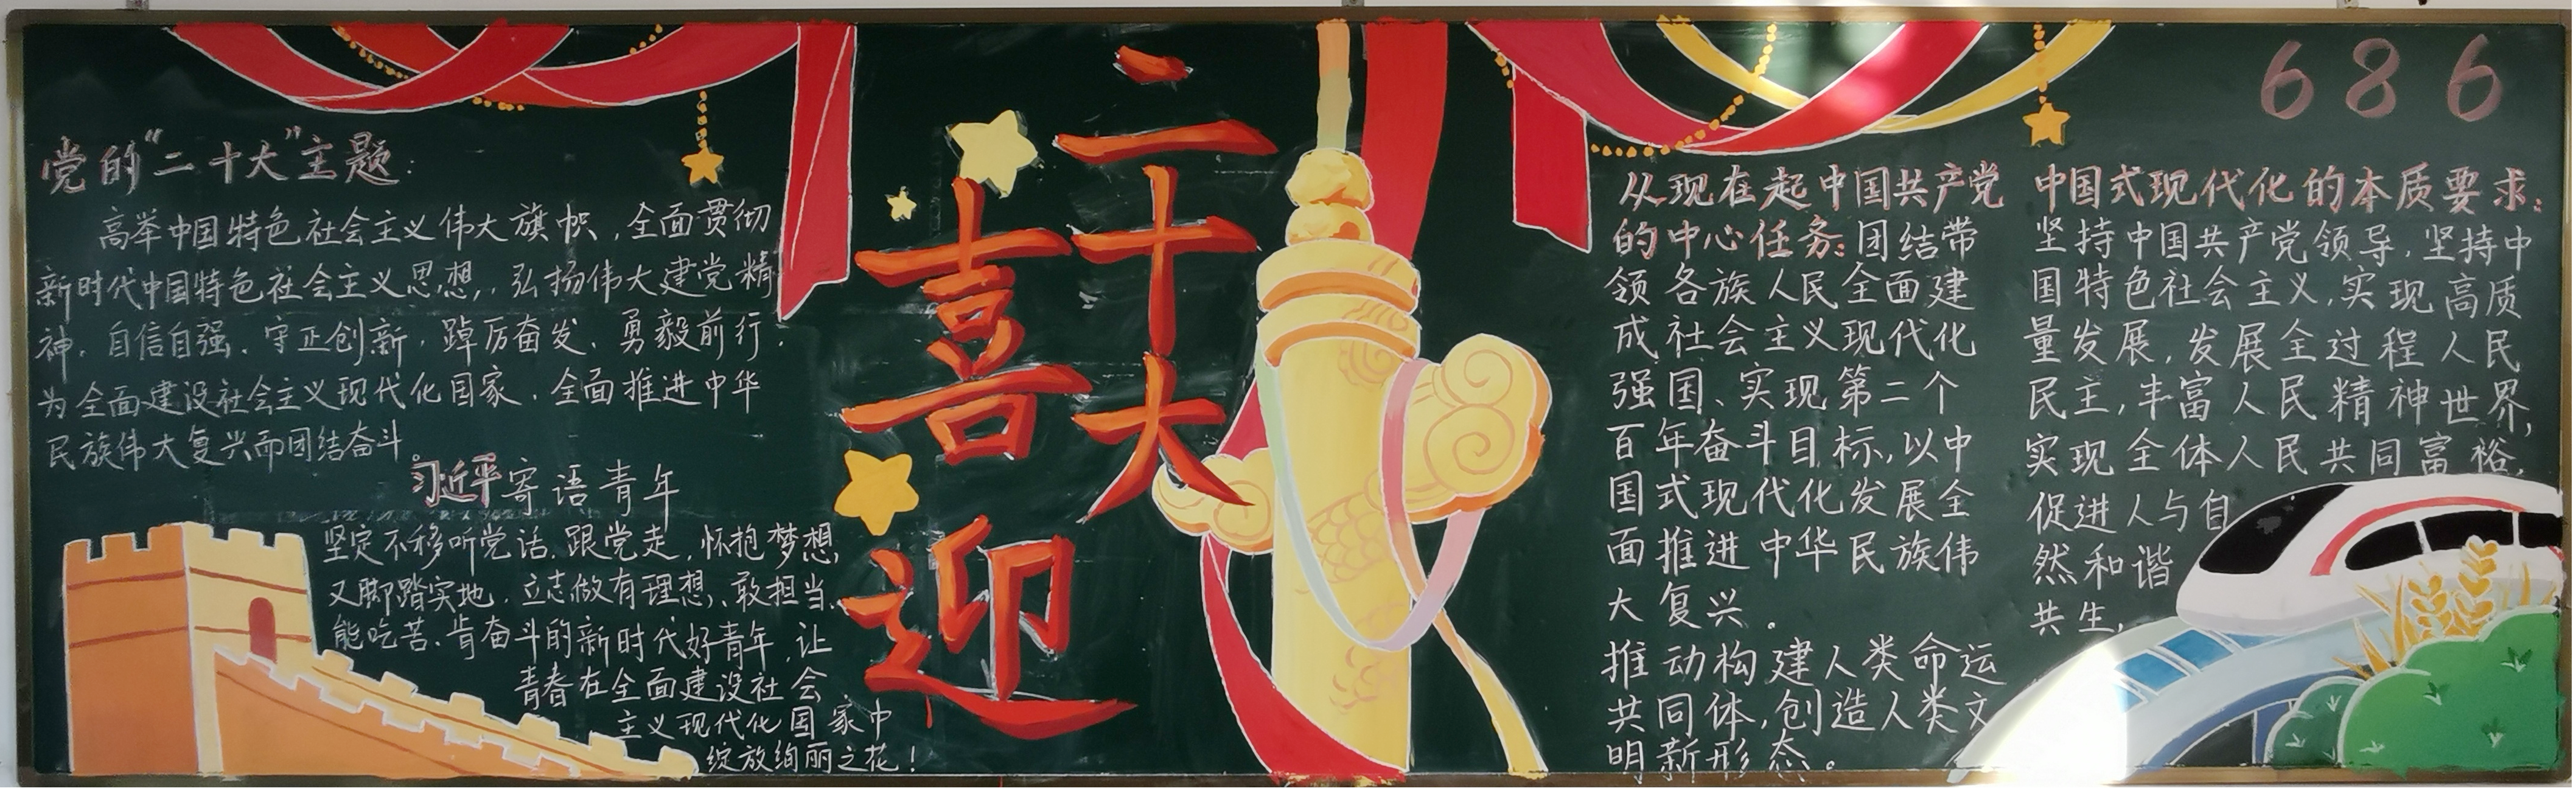 党的“二十大”主题：
高举中国特色社会主义伟大旗帜，全面贯彻
新时代中国特色社会主义思想，弘扬伟大建党精
神，自信自强、守正创新，踔厉奋发、勇毅前行，
为全面建设社会主义现代化国家、全面推进中华
民族伟大复兴而团结奋斗
习近平寄语青年
坚定不移听党话、跟党走，怀抱梦想
又脚踏实地，立志做有理想、敢担当、
能吃苦、肯奋斗的新时代好青年，让
青春在全面建设社会
主义现代化国家中
绽放绚丽之花！
喜迎
二十大
从现在起中国共产党
的中心任务：团结带
领各族人民全面建
成社会主义现代化
强国、实现第二个
百年奋斗目标，以中
国式现代化发展全
面推进中华民族伟
大复兴。
推动构建人类命运
共同体，创造人类文
明新形态。
686
中国式现代化的本质要求：
坚持中国共产党领导，坚持中
国特色社会主义，实现高质
量发展，发展全过程人民
民主，丰富人民精神世界，
实现全体人民共同富裕，
促进人与自
然和谐
共生，